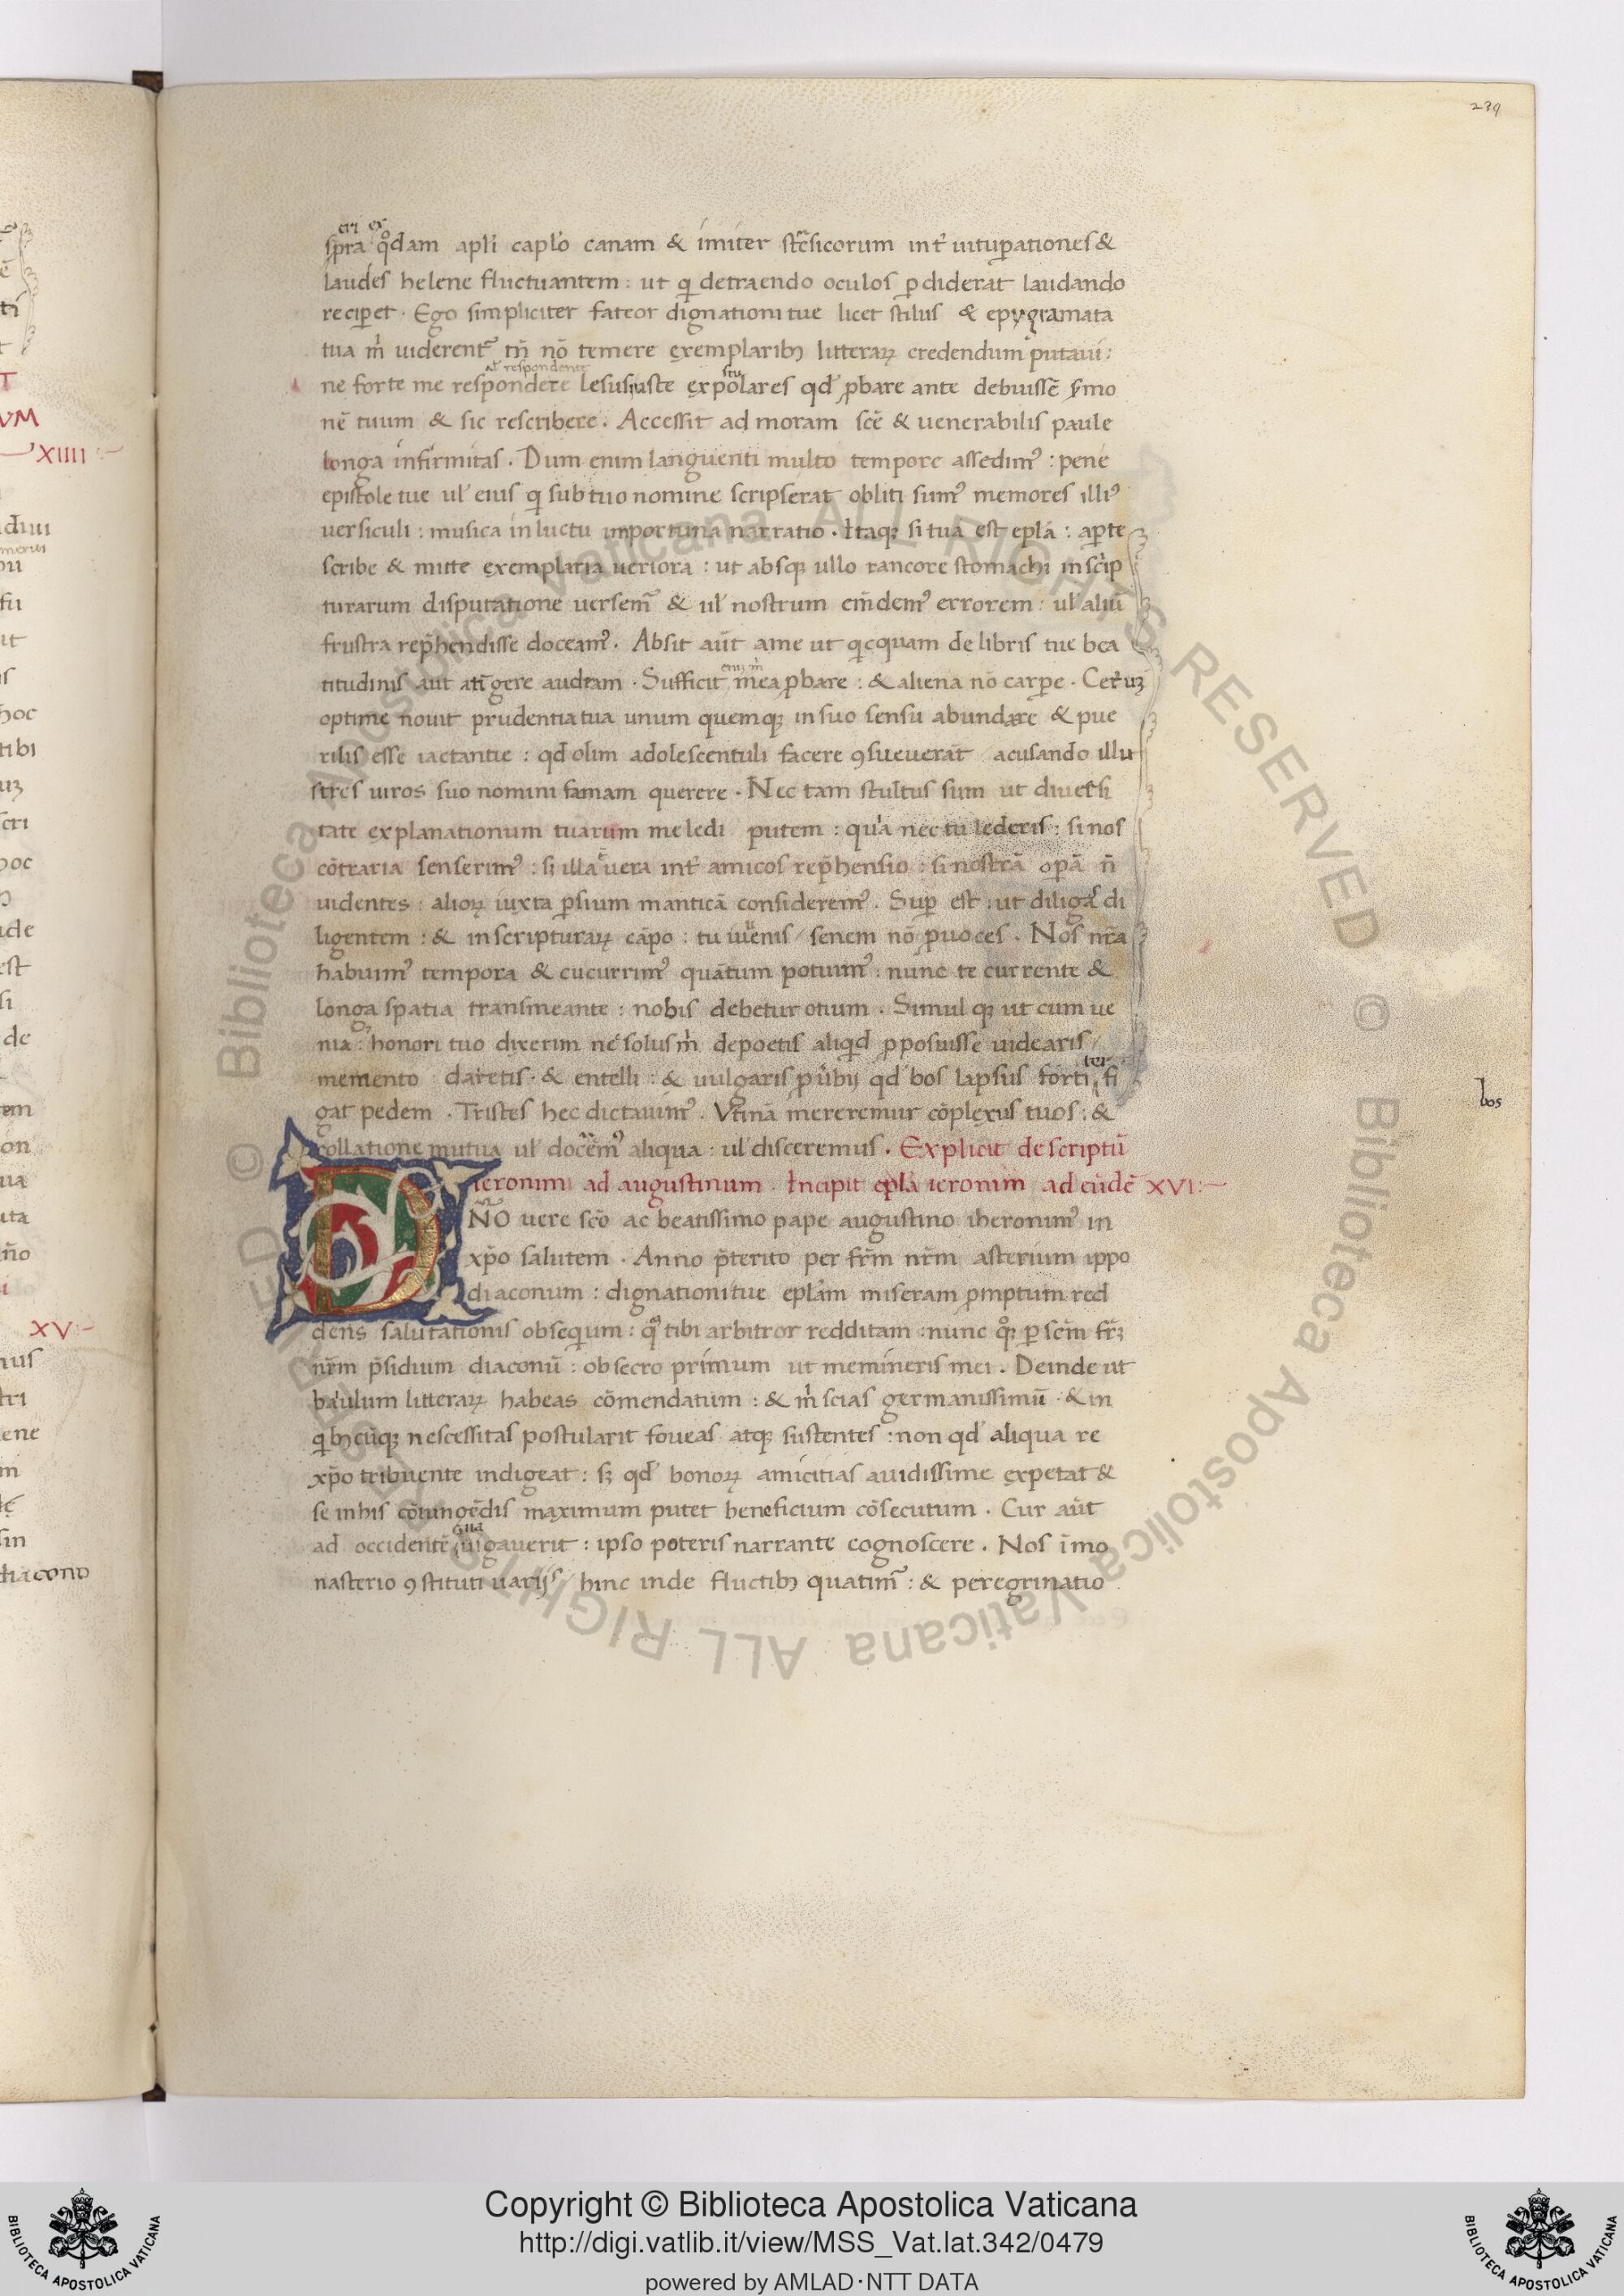 239
eri ex
spra qdam apli caplo canam & imiter stesicorum int uituꝑationes &
laudes helene fluctuantem : ut qi detraendo oculos ꝑdiderat laudando
reciꝑet . Ego simpliciter fateor dignationi tue licet stilus & epygramata
tua ṁ uiderent᷒ tn̄ nō temere exemplarib; litteraꝝ credendum putaui :
at respondente stu
ne forte me respondere lesus iuste expolares qd ꝓbare ante debuissē s̄mo
nē tuum & sic rescribere . Accessit ad moram scē & uenerabilis paule
longa infirmitas . Dum enim languenti multo tempore assedim᾽ : pene
epistole tue ul' eius qi sub tuo nomine scripserat obliti sum᾽ memores illi᾽
uersiculi : musica in luctu importuna narratio . Itaq; si tua est epl̄a : aꝑte
scribe & mitte exemplaria ueriora : ut absq; ullo rancore stomachi in scrip
turarum disputatione uersem᷒ & ul' nostrum em̄dem᾽ errorem : ul' aliū
frustra rep̄hendisse doceam᾽ . Absit aūt ame ut qicquam de libris tue bea
enī ṁ
titudinis aut atīgere audeam . Sufficit mea ꝓbare : & aliena nō carꝑe . Ceteruꝫ
optime nouit prudentia tua unum quemq; in suo sensu abundare & pue
rilis esse iactantie : qd olim adolescentuli facere ꝯsueuerāt acusando illu
stres uiros suo nomini famam querere . Nec tam stultus sum ut diuersi
tate explanationum tuarum me ledi putem : quia nec tu lederis : si nos
cōtraria senserim᾽ : sꝫ illa ē uera int̄ amicos rep̄hensio : si nostrā oꝑā n̄
uidentes : alioꝝ iuxta ꝑsium manticā considerem᾽ . Suꝑ est : ut diligas di
ligentem : & in scripturaꝝ cāpo : tu iuuenis / senem nō ꝓuoces . Nos nr̄a
habuim᾽ tempora & cucurrim᾽ quātum potuim᾽ : nunc te currente &
longa spatia transmeante : nobis debetur otium . Simul q; ut cum ue
nia : honori tuo dixerim ne solus ṁ de poetis aliqid ꝓposuisse uidearis /
ter
memento daretis . & entelli : & uulgaris ꝓūbij qd bos lapsus forti fi
bos
gat pedem . Tristes hec dictauim᾽ . Vtinā mereremur cōplexus tuos : &
collatione mutua ul' docerem᾽ aliqua : ul' disceremus . Explicit descriptū
ieronimi ad augustinum . Incipit epl̄a ieronim ad eūdē XVI :~
DNO uere scō ac beatissimo pape augustino iheronim᾽ in
xp̄o salutem . Anno p̄terito per fr̄m nr̄m asterium ippo
diaconum : dignationi tue epl̄am miseram ꝓmptum red
dens salutationis obseqium : quā tibi arbitror redditam : nunc qoq; ꝑ scm̄ fr̄ꝫ
nr̄m p̄sidium diaconū : obsecro primum ut memineris mei . Deinde ut
baiulum litteraꝝ habeas cōmendatum : & ṁ scias germanissimū . & in
qib;cūq; nescessitas postularit foueas atq; sustentes : non qd aliqua re
xp̄o tribuente indigeat : sꝫ qd bonoꝝ amicitias auidissime expetat &
se in his cōiungēdis maximum putet beneficium cōsecutum . Cur aūt
ad occidentē nauigauerit : ipso poteris narrante cognoscere . Nos ī mo
nasterio ꝯstituti uarijs / hinc inde fluctib; quatim᷒ : & peregrinatio
T
VM
XIIII :~
hoc
tibi
hoc
ude
est
de
XV :~
diacono
© Biblioteca Apostolica Vaticana ALL RIGHTS RESERVED © Biblioteca Apostolica Vaticana ALL RIGHTS RESERVED
Copyright © Biblioteca Apostolica Vaticana
http://digi.vatlib.it/view/MSS_Vat.lat.342/0479
powered by AMLAD·NTT DATA
BIBLIOTECA APOSTOLICA VATICANA
BIBLIOTECA APOSTOLICA VATICANA